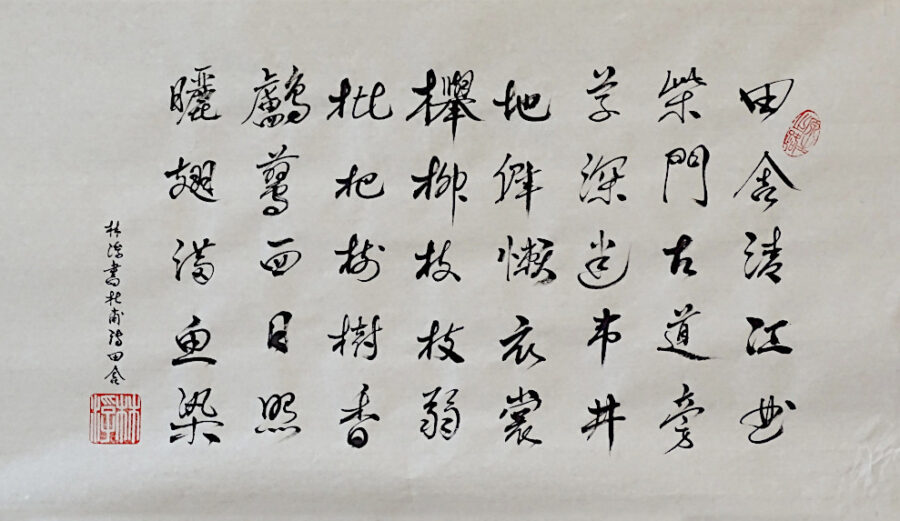 田舍清江曲
柴門古道旁
草深迷市井
地僻懶衣裳
櫸柳枝枝弱
枇杷樹樹香
鸕鶿西日照
曬翅滿魚梁
林書杜甫詩田舍